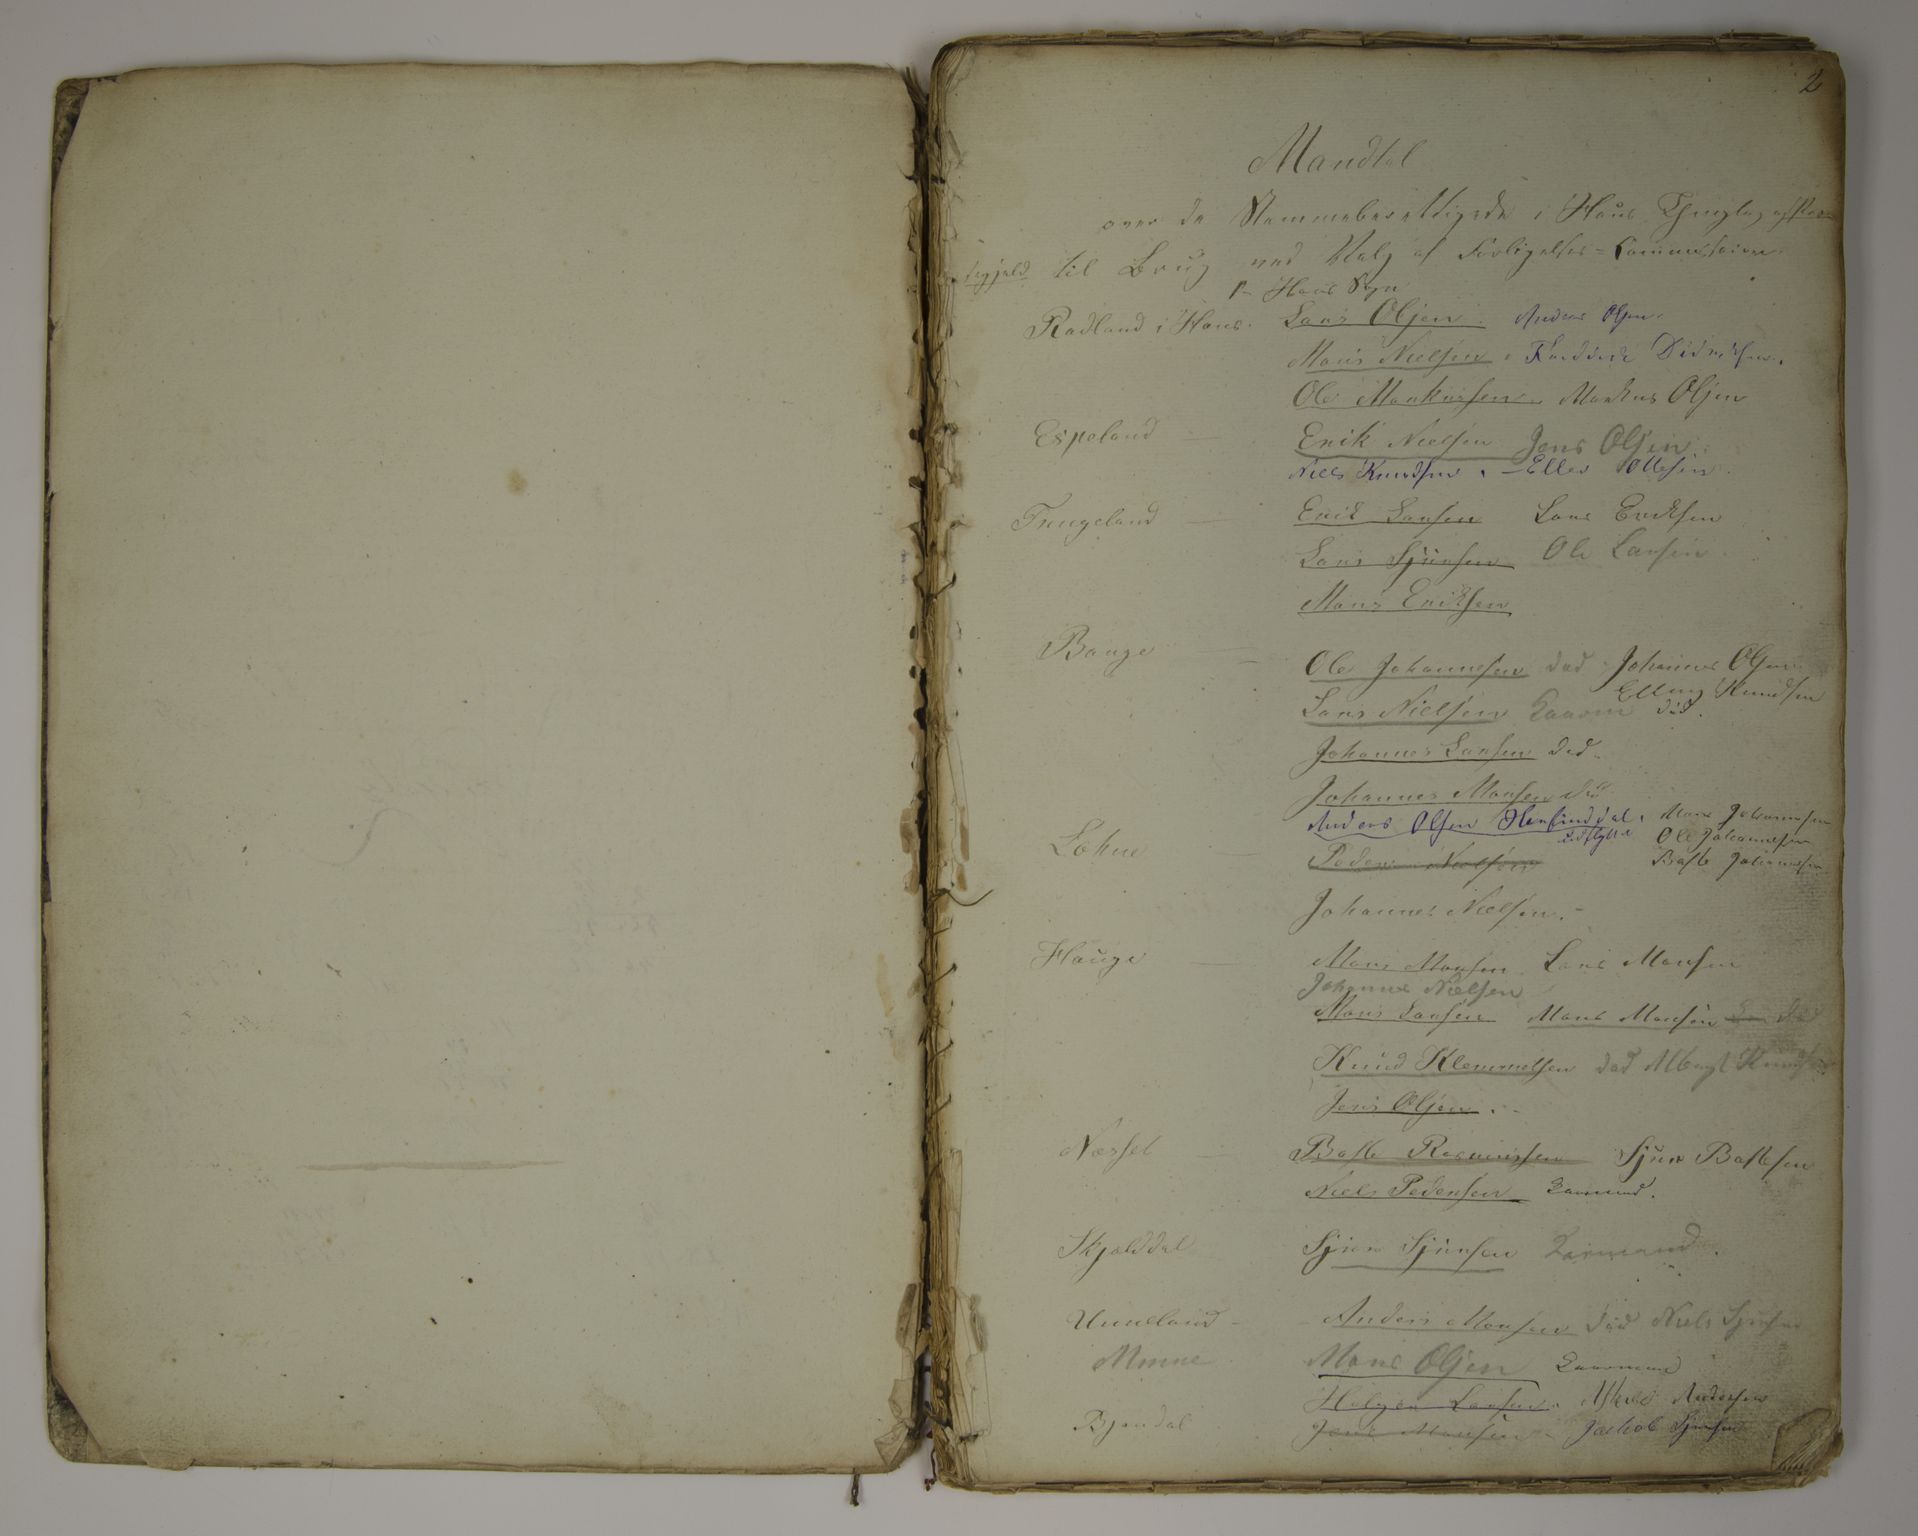 2
Mandtal
over de Stemmeberettigede i Haus Thinglag af Præ-
stegjeld til Brug ved Valg af Forligelses-Commissairer
Haus Sogn
Radland i Haus. Lars Olsen. Anders Olsen.
Mons Nielsen Didriksen.
Ole Markussen. Markus Olsen
Espeland Erik Nielsen Jens Olsen
Niels Knudsen. Ellev Ollesen.
Tungeland Erik Larsen Lars Eriksen
Lars Sjursen Ole Larsen.
Mons Eriksen
Bauge Ole Johannesen død Johannes Olsen
Elling Knudsen
Lars Nielsen død.
Johannes Larsen død.
Johannes Monsen død
Anders Olsen Mons Johannesen
Lohne udflyttet Ole Johannesen
Peder Nielsen Baste Johannesen
Johannes Nielsen.
Hauge Mons Monsen Lars Monsen
Johannes Nielsen
Mons Larsen Mons Monsen død
Knud Klemmetsen død Knudsen
Jens Olsen.
Næsset Baste Rasmussen Sjur Bastesen
Niels Pedersen Kaarmand.
Skjælddal Sjur Sjursen Kaarmand.
Unneland Anders Monsen død Niels Sjursen
Minne Mons Olsen Kaarmand
Holger Larsen. Andersen
Bjendal Jens Monsen Jachob Sjursen